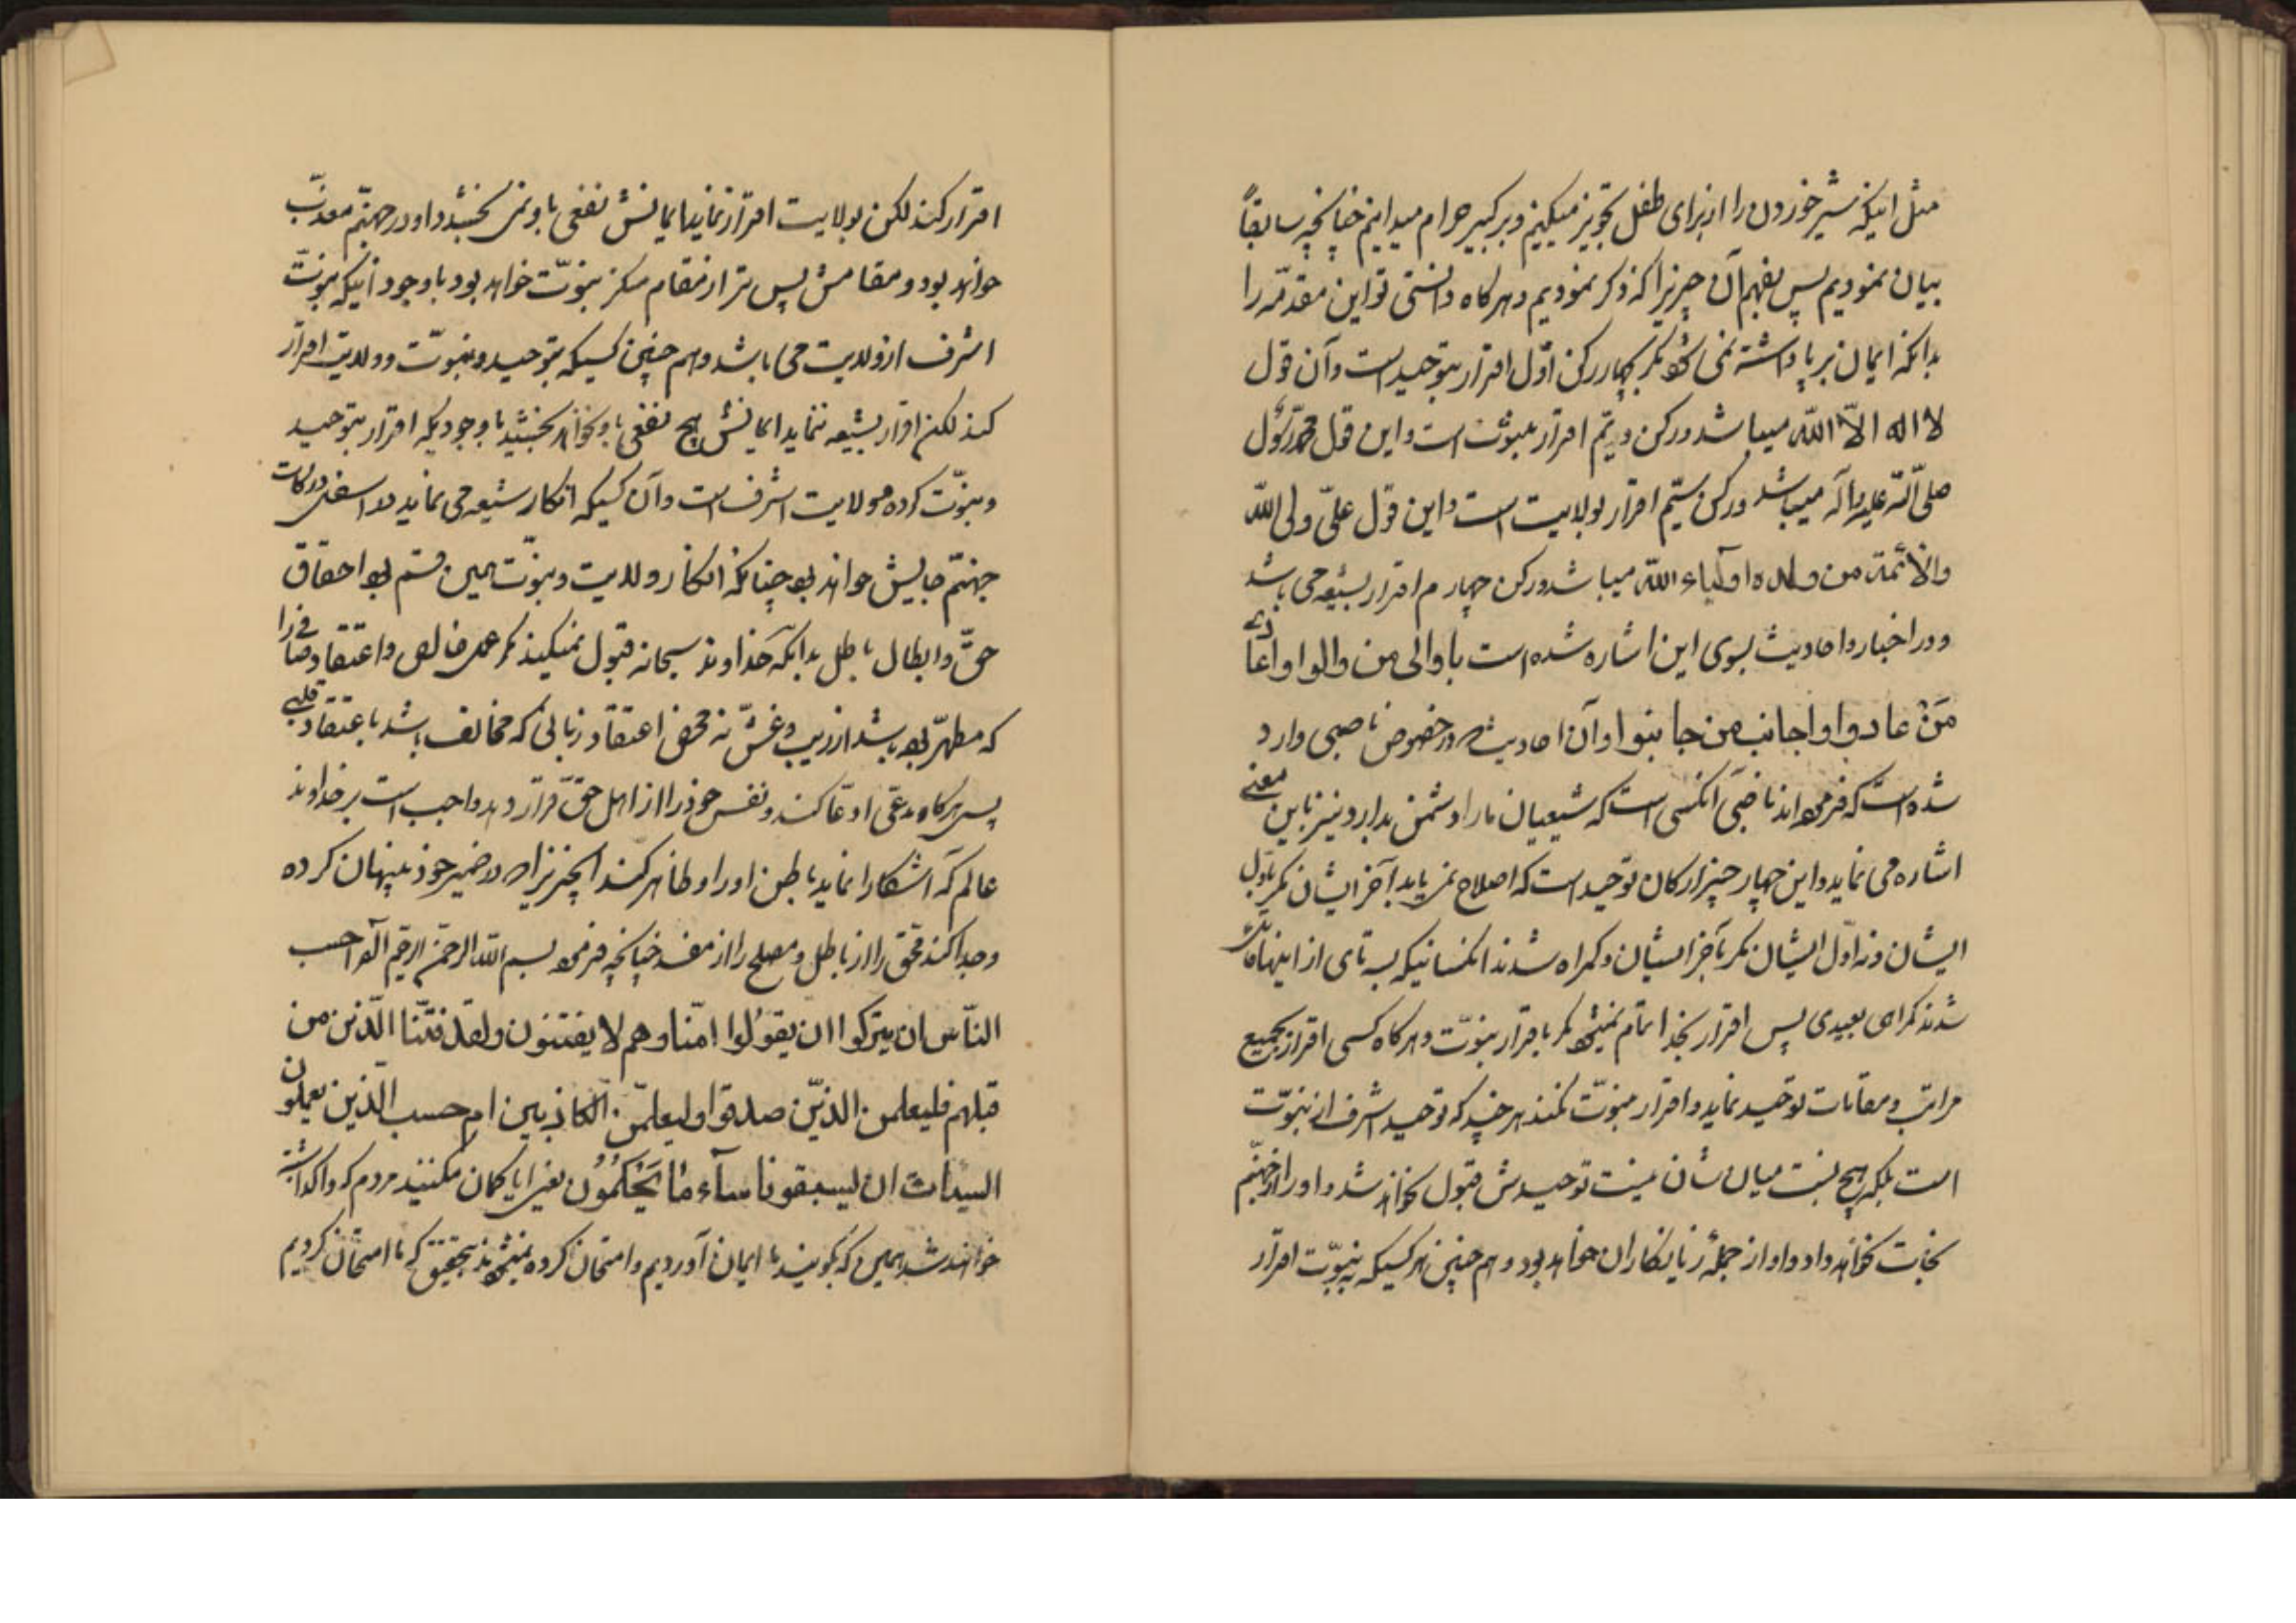 مثل اینکه شیر خوردن را از برای طفل تجویز میکنیم و بر کبیر حرام میدانیم چنانچه سابقاً
بیان نمودیم پس بفهم آن چیزیرا که ذکر نمودیم و هرکاه دانستی تو این مقدّمه را
بدانکه ایمان بر پا داشته نمی شود مکر بچهار رکن اوّل اقرار بتوحید است و آن قول
لا اله الّا اللّه میباشد و رکن دویّم اقرار بنبوّت است و این قول محمّد رسول
صلّی اللّه علیه و آله میباشد و رکن سیّم اقرار بولایت است و این قول علیّ ولی اللّه
والائمّة من ولده اولیاء اللّه میباشد و رکن چهارم اقرار بشیعه می باشد
و در اخبار و احادیث بسوی این اشاره شده است با والی من والوا و اعادی
مَنْ عادوا و اجانب من جانبوا و آن احادیث که در خصوص ناصبی وارد
شده است که فرموده اند ناصبی آنکسی است که شیعیان ما را دشمن بدارد و نیز باین معنی
اشاره می نماید و این چهار چیز ارکان توحید است که اصلاح نمی یابد آخر ایشان مکر باوّل
ایشان و نه اوّل ایشان مکر بآخر ایشان و کمراه شدند انکسانیکه بسه تای از اینها قائل
شدند کمراهی بعیدی پس اقرار بخدا تمام نمیشود مکر باقرار بنبوّت و هرکاه کسی اقرار بجمیع
مراتب و مقامات توحید نماید و اقرار بنبوّت نکند هر چند که توحید اشرف از نبوّت
است بلکه هیچ نسبت میان شان نیست توحیدش قبول نخواهد شد و او را از جهنّم
نجات نخواهد داد و او از جملهٔ زیانکاران خواهد بود و هم چنین هر کسیکه بنبوّت اقرار
اقرار کند لکن بولایت اقرار ننماید ایمانش نفعی باو نمی بخشد و او در جهنّم معذّب
خواهد بود و مقامش پس تر از مقام منکر نبوّت خواهد بود با وجود اینکه نبوّت
اشرف از ولایت می باشد و هم چنین کسیکه بتوحید و بنبوّت و ولایت اقرار
کند لکن اقرار بشیعه ننماید ایمانش هیچ نفعی باو نخواهد بخشید با وجودیکه اقرار بتوحید
و بنبوّت کرده و ولایت اشرف است و آن کسیکه انکار شیعه می نماید در اسفل درکات
جهنّم جایش خواهد بود چنانکه انکار ولایت و نبوّت همین قسم بود احقاق
حقّ و ابطال باطل بدانکه خداوند سبحانه قبول نمیکند مکر عمل خالص و اعتقاد صافی را
که مطهّر بوده باشد از ریب و غشّ نه محض اعتقاد زبانی که مخالف باشد با اعتقاد قلبی
پس هرکاه مدعّی ادعّا کند و نفس خود را از اهل حقّ قرار دهد واجب است بر خداوند
عالم که آشکارا نماید باطن او را و ظاهر کند آنچیزیرا که در ضمیر خود پنهان کرده
و جدا کند محقّ را از باطل و مصلح را از مفسد چنانچه فرموده بسم اللّه الرحمن الرحیم الم احسب
النّاس ان یترکوا ان یقولوا امنّا وهم لا یفتنون ولقد فتنّا الّذین من
قبلهم فلیعلمن الذیّن صدقوا ولیعلمّن الکاذبین ام حسب الّذین یعملون
السیئات ان یسبقونا سآء ما یَحْکُمُون یعنی ایا کمان میکنید مردم که واکذاشته
خواهند شد همین که بکویند ما ایمان آوردیم و امتحان کرده نمیشوند بتحقیق که ما امتحان کردیم